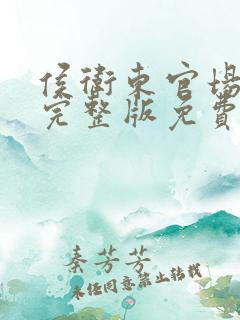 侯衛東官場
完整版免費
秦芳芳
未经同意禁止转载